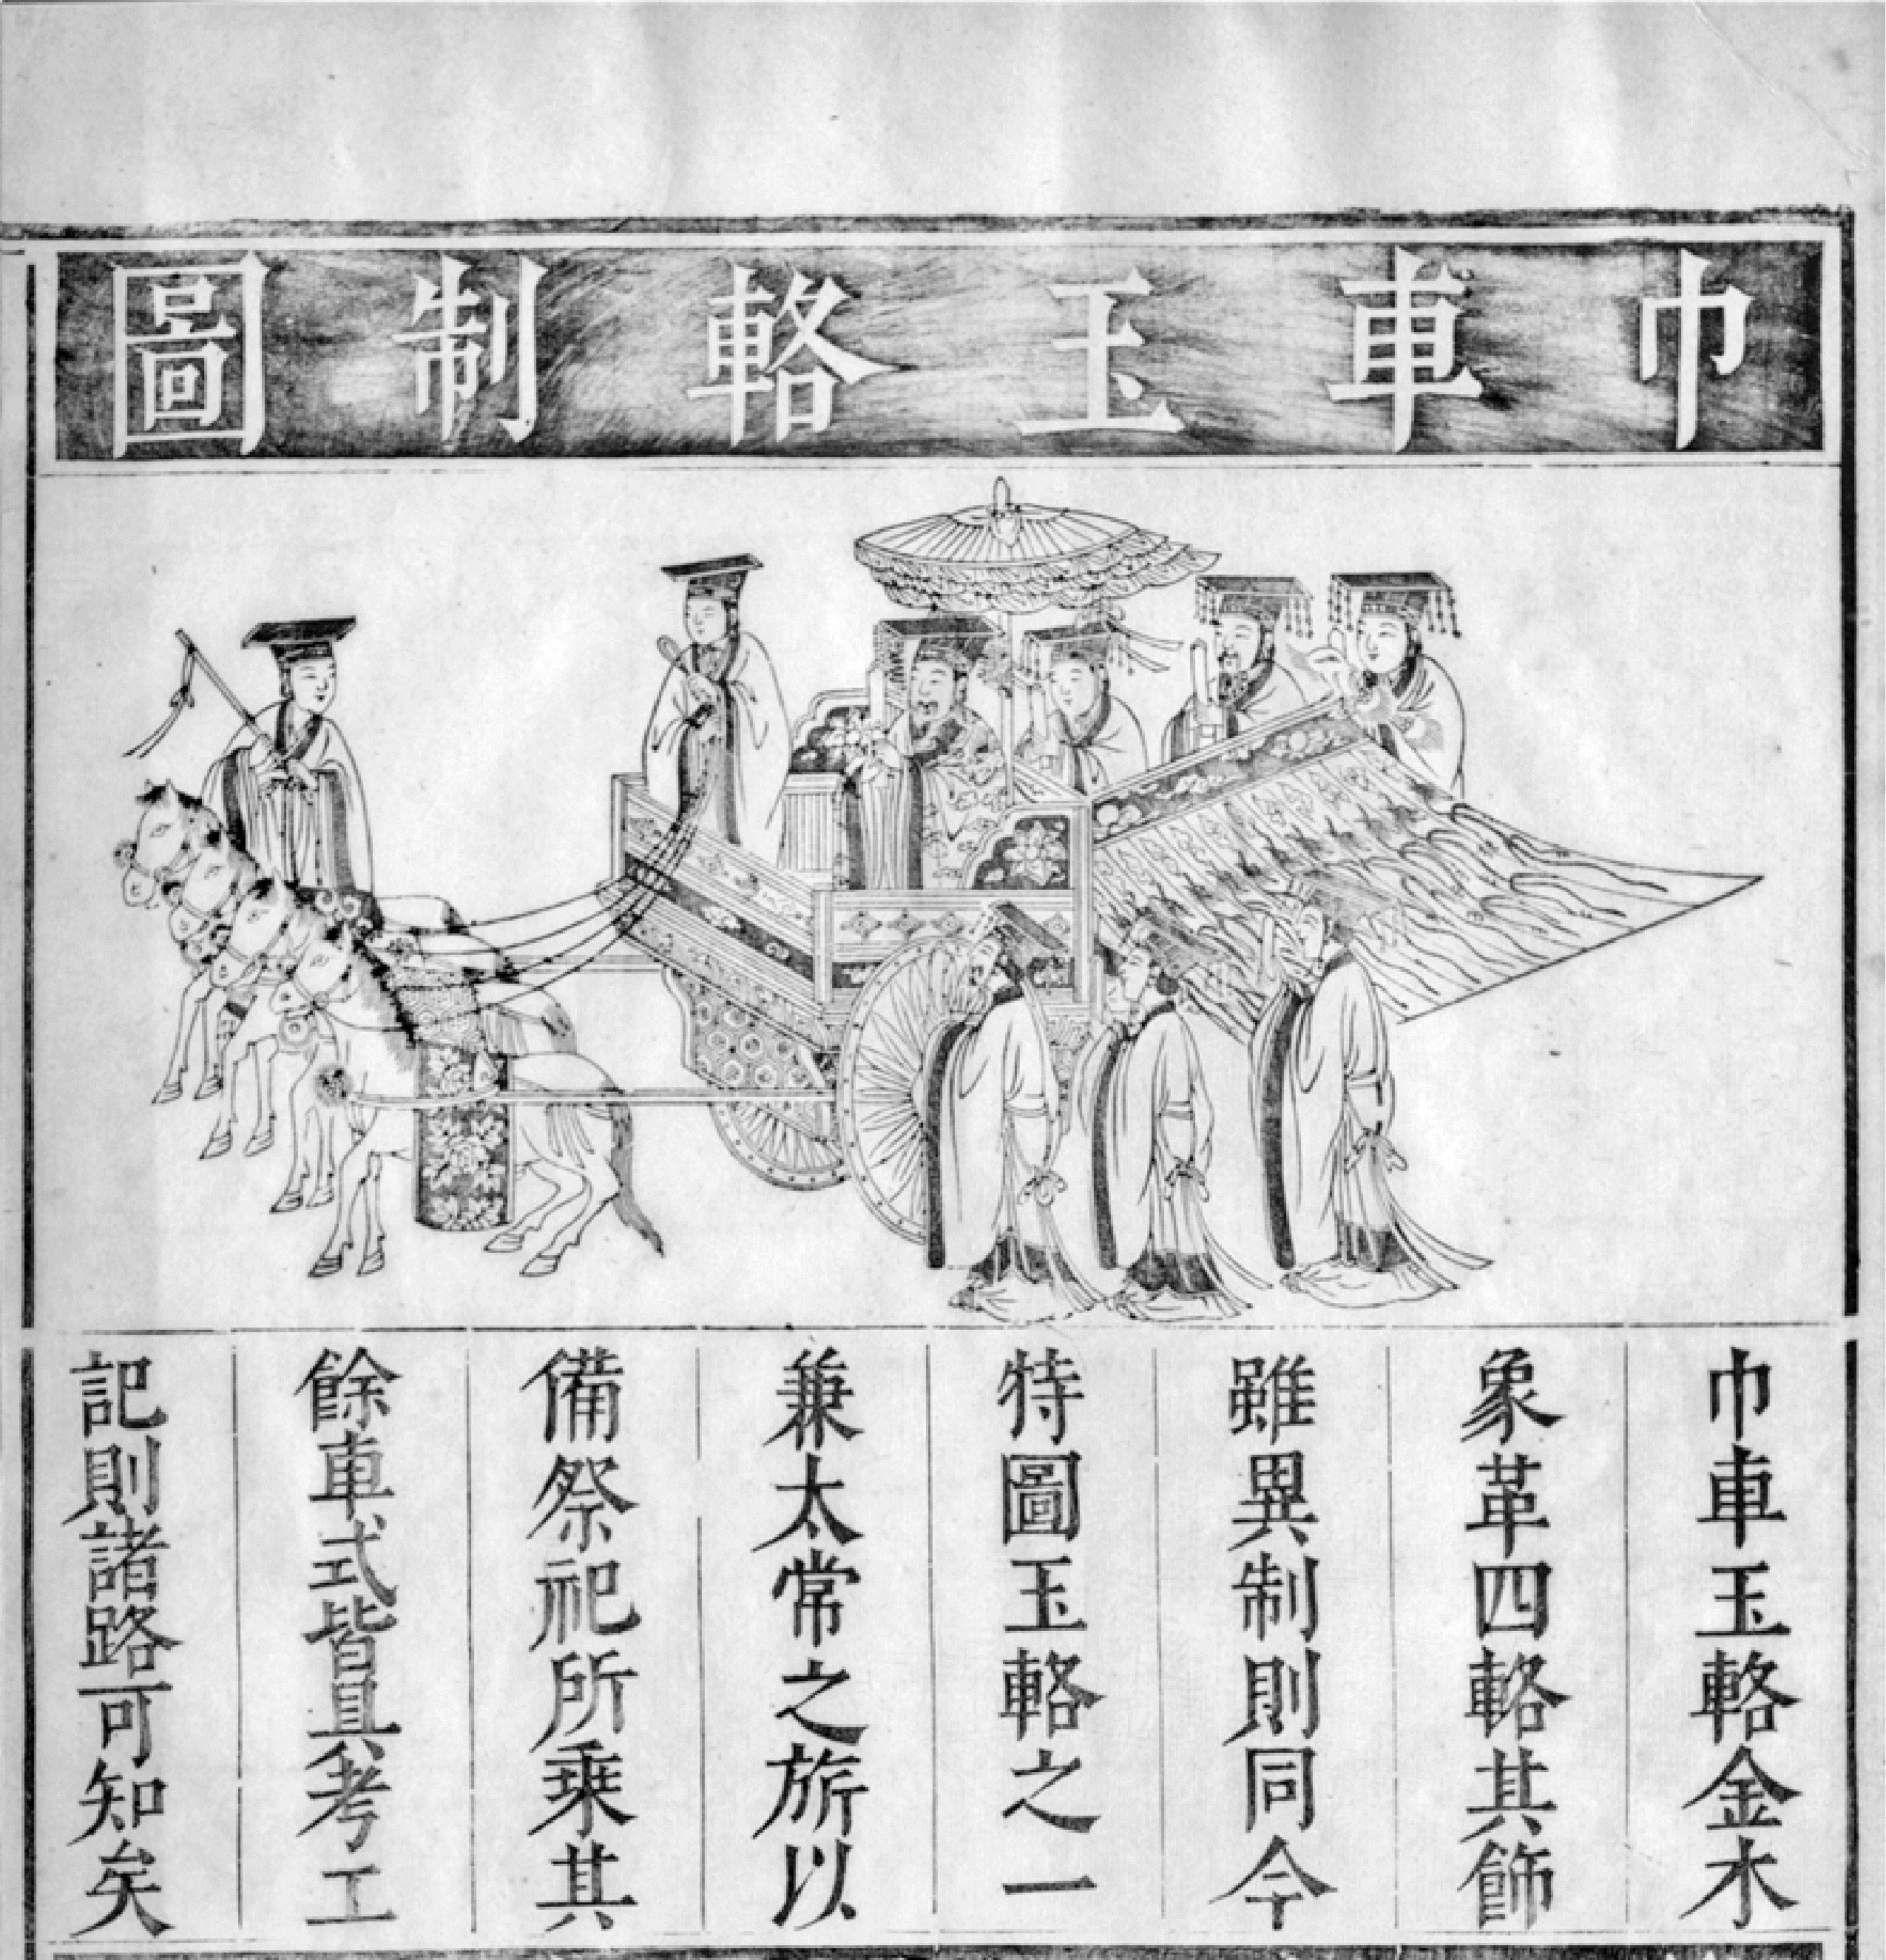 巾車玉輅制圖
巾車玉輅金木
象革四輅其飾
雖異制則同今
特圖玉輅之一
兼太常之旂以
備祭祀所乗其
餘車式皆具考工
記則諸路可知矣